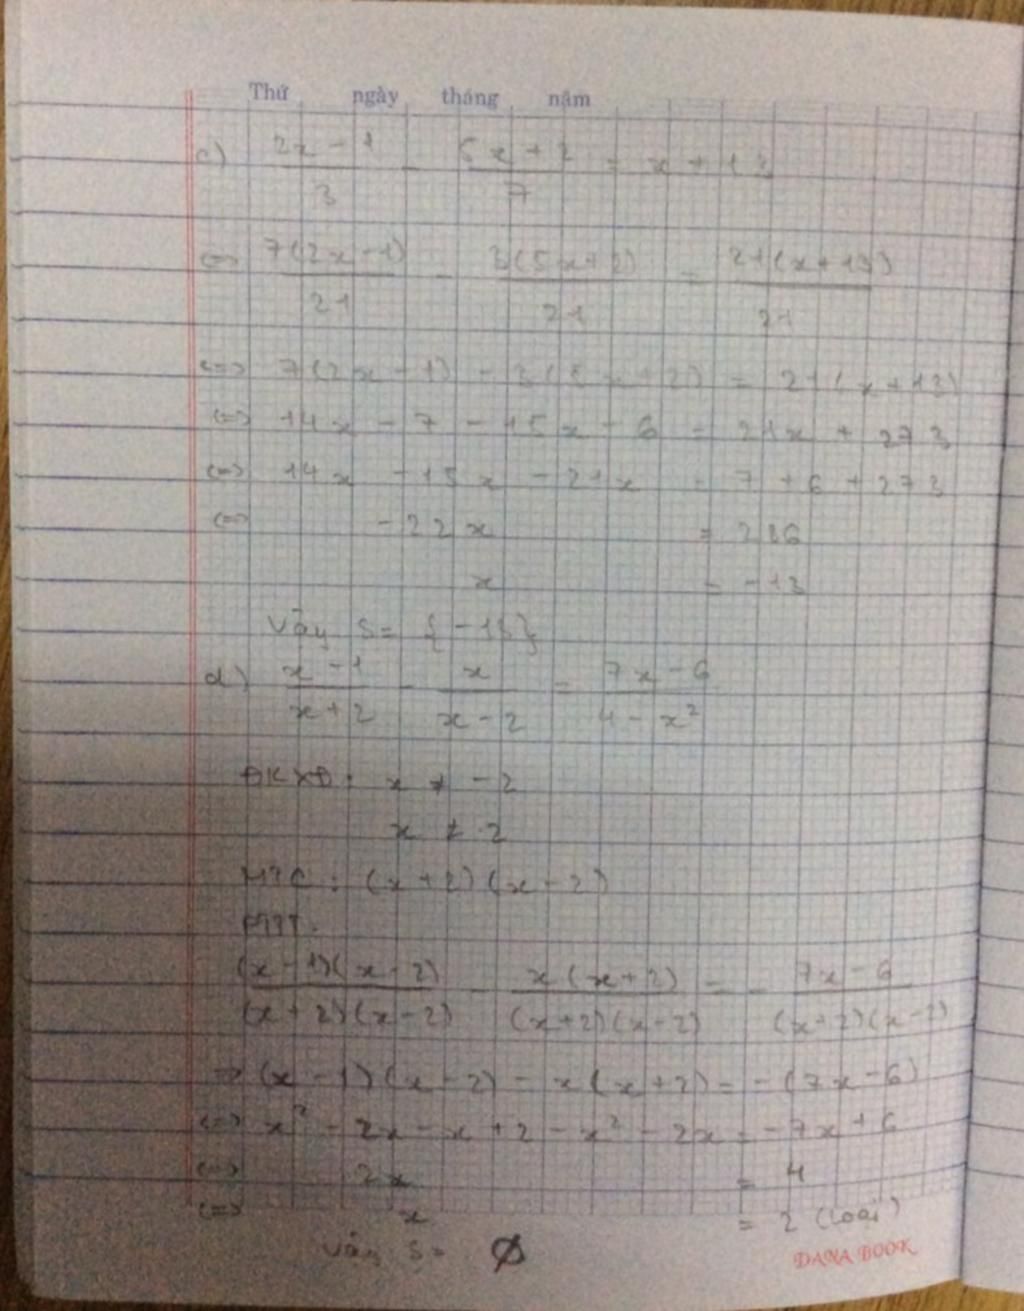 Thứ ngày tháng năm
c) (2x - 1)/3 - (5x + 2)/7 = x + 13
<=> 7(2x - 1)/21 - 3(5x + 2)/21 = 21(x + 13)/21
<=> 7(2x - 1) - 3(5x + 2) = 21(x + 13)
<=> 14x - 7 - 15x - 6 = 21x + 273
<=> 14x - 15x - 21x = 7 + 6 + 273
<=> -22x = 286
x = -13
Vậy S = {-13}
d) (x - 1)/(x + 2) - x/(x - 2) = (7x - 6)/(4 - x²)
ĐKXĐ: x ≠ -2
x ≠ 2
MTC: (x + 2)(x - 2)
(x - 1)(x - 2)/(x + 2)(x - 2) - x(x + 2)/(x + 2)(x - 2) = - (7x - 6)/(x + 2)(x - 2)
=> (x - 1)(x - 2) - x(x + 2) = -(7x - 6)
<=> x² - 2x - x + 2 - x² - 2x = -7x + 6
<=> 2x = 4
<=> x = 2 (loại)
Vậy S = Ø
DANA BOOK